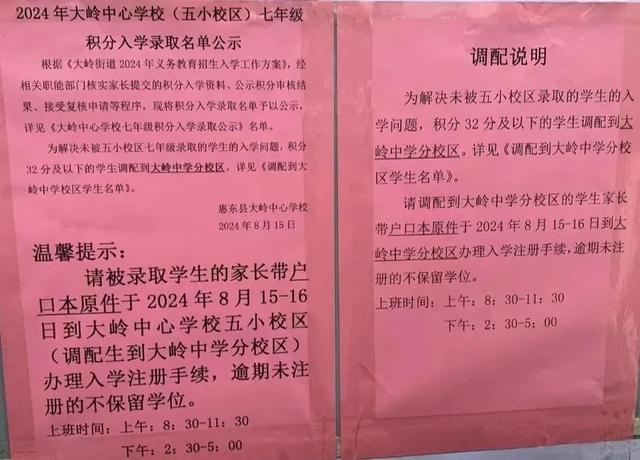 2024年大岭中心学校（五小校区）七年级
积分入学录取名单公示
根据《大岭街道2024年义务教育招生入学工作方案》，经
相关职能部门核实家长提交的积分入学资料、公示积分审核结
果、接受复核申请等程序，现将积分入学录取名单予以公示，
详见《大岭中心学校七年级积分入学录取公示》名单。
为解决未被五小校区七年级录取的学生的入学问题，积分
32分及以下的学生调配到大岭中学分校区。详见《调配到大
岭中学校区学生名单》。
惠东县大岭中心学校
2024年8月15日
温馨提示：
请被录取学生的家长带户
口本原件于2024年8月15-16
日到大岭中心学校五小校区
（调配生到大岭中学分校区）
办理入学注册手续，逾期未注
册的不保留学位。
上班时间：上午：8：30-11：30
下午：2：30-5：00
调配说明
为解决未被五小校区录取的学生的入
学问题，积分32分及以下的学生调配到大
岭中学分校区。详见《调配到大岭中学分校
区学生名单》。
请调配到大岭中学分校区的学生家长
带户口本原件于2024年8月15-16日到大
岭中学分校区办理入学注册手续，逾期未注
册的不保留学位。
上班时间：上午：8：30-11：30
下午：2：30-5：00